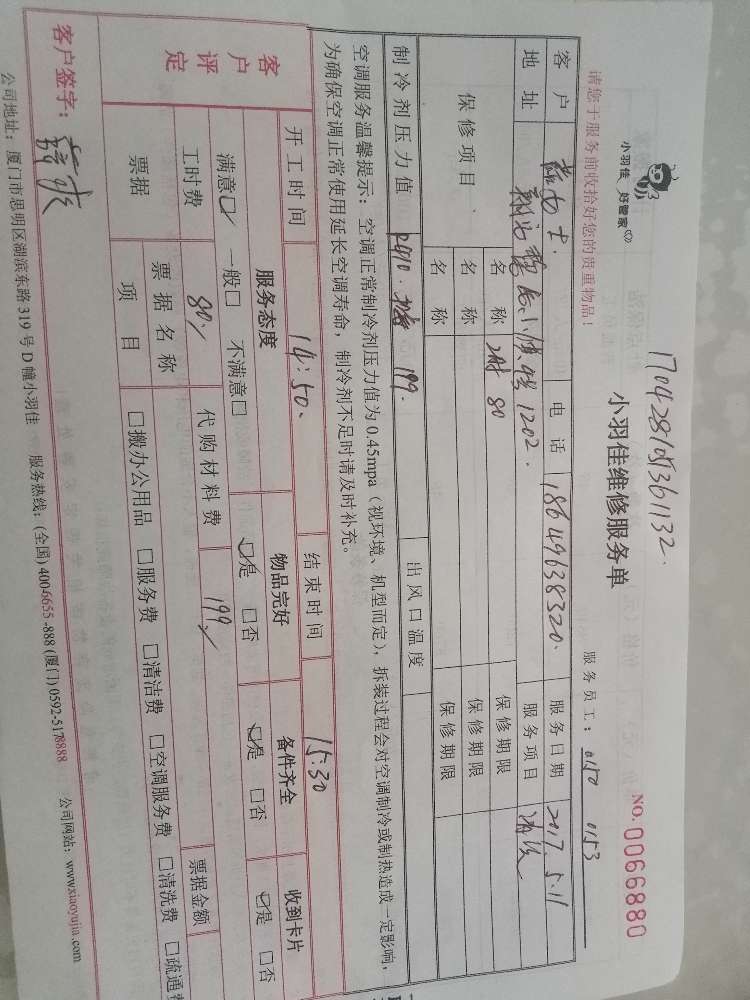 170428105361132.
小羽佳 好管家
小羽佳维修服务单
NO. 0066880
请您于服务前收拾好您的贵重物品！
服务员工： 0150 0153
客户 电话 18649638320. 服务日期 2017.5.11
地址 1202. 服务项目 清洗
保修项目 名称 80 保修期限
名称 保修期限
名称 保修期限
制冷剂压力值 R410. 199. 出风口温度
空调服务温馨提示：空调正常制冷剂压力值为0.45mpa（视环境、机型而定），拆装过程会对空调制冷或制热造成一定影响，
为确保空调正常使用延长空调寿命，制冷剂不足时请及时补充。
开工时间 14:50. 结束时间 15:30
客户评定 服务态度 物品完好 备件齐全 收到卡片
满意☑ 一般□ 不满意□ ☑是 □否 ☑是 □否 ☑是 □否
工时费 80 代购材料费 199 票据金额
票据 票据名称
项目 □搬办公用品 □服务费 □清洁费 □空调服务费 □清洗费 □疏通费
客户签字：
公司地址：厦门市思明区湖滨东路319号D幢小羽佳 服务热线：(全国) 4006655-888 (厦门) 0592-5178888 公司网站：www.xiaoyujia.com